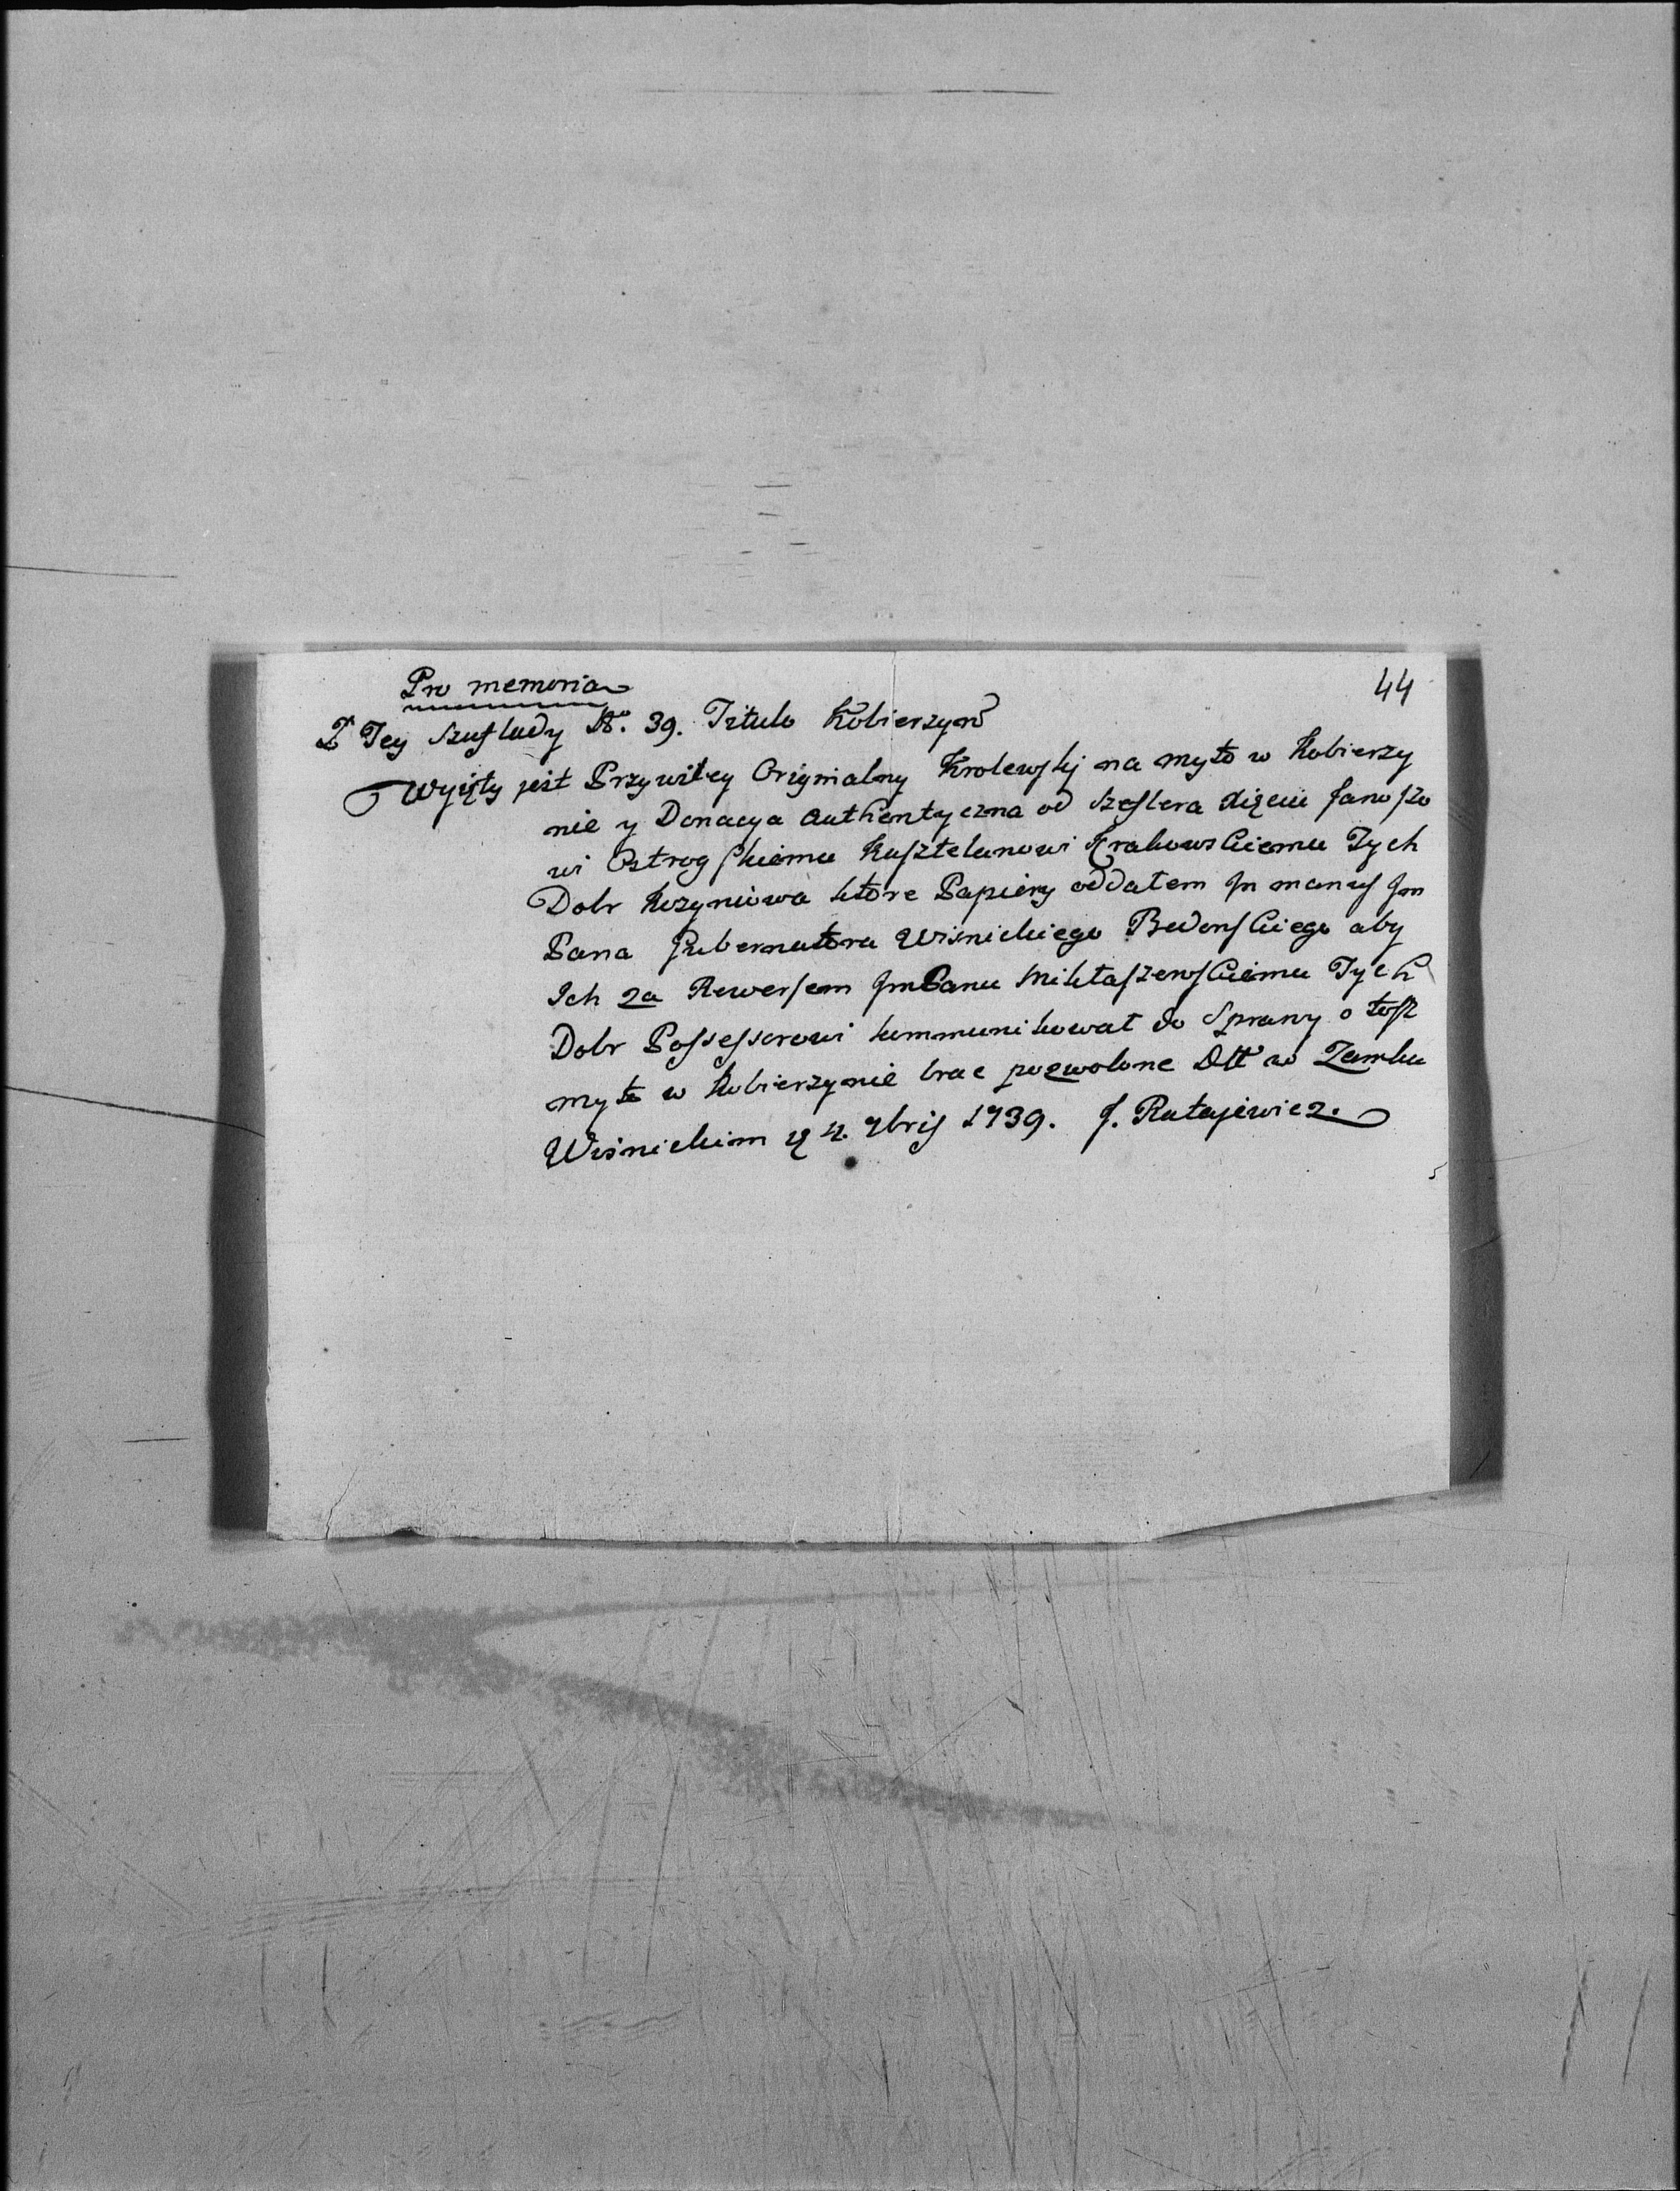 Pro memoria
44
Z Tey Szuflady No. 39. Titulo Kobierzyn
Wyięty jest Przywiley Oryginalny Krolewskj na myto w Kobierzy
nie y Donacya authentyczna od Szeflera Xiążęciu Janoszo
wi Ostrogskiemu Kasztelanowi Krakowskiemu Tych
Dobr ktore Papiery oddałem Jn manus Jm
Pana Gubernatora Wisnickiego aby
Ich za Rewersem JmPanu Mikłaszewskiemu Tych
Dobr Possessorowi kommunikował do Sprawy o tosz
myto w Kobierzynie brac pozwolone Dtt w Zamku
Wisnickim 1739. J. Ratajewicz.